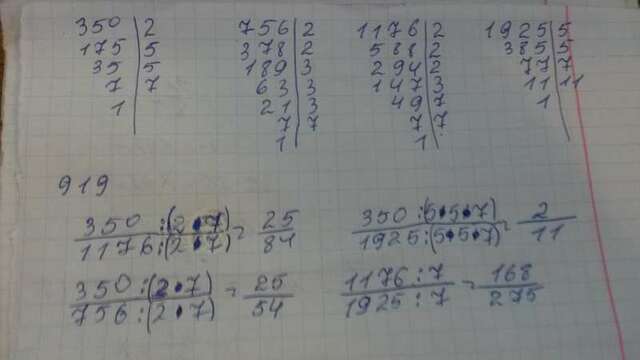 350 | 2
175 | 5
35 | 5
7 | 7
1
756 | 2
378 | 2
189 | 3
63 | 3
21 | 3
7 | 7
1
1176 | 2
588 | 2
294 | 2
147 | 3
49 | 7
7 | 7
1
1925 | 5
385 | 5
77 | 7
11 | 11
1
919
350 :(2•7) / 1176:(2•7) = 25 / 84
350 :(5•5•7) / 1925:(5•5•7) = 2 / 11
350:(2•7) / 756:(2•7) = 25 / 54
1176:7 / 1925:7 = 168 / 275